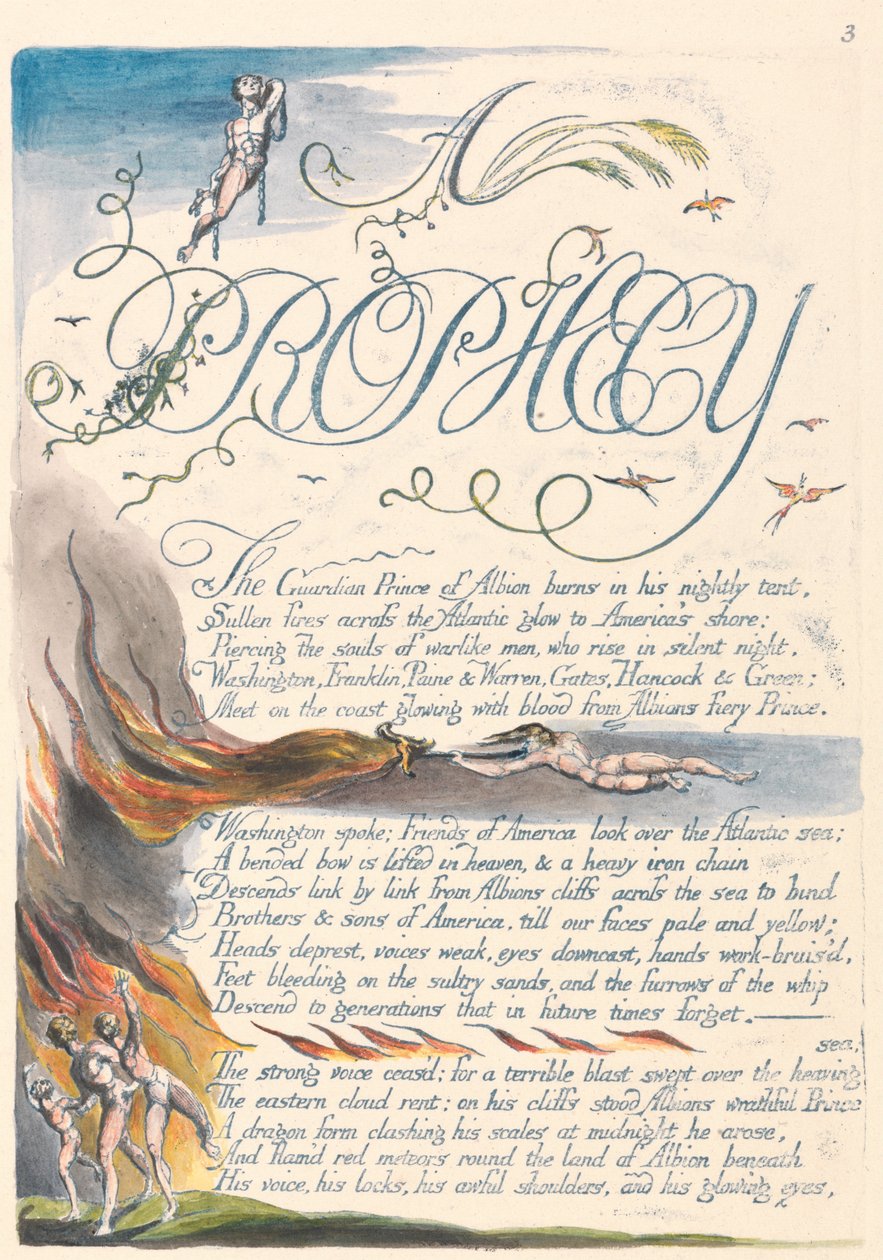 3
A
PROPHECY
The Guardian Prince of Albion burns in his nightly tent,
Sullen fires across the Atlantic glow to America's shore:
Piercing the souls of warlike men, who rise in silent night,
Washington, Franklin, Paine & Warren, Gates, Hancock & Green;
Meet on the coast glowing with blood from Albions fiery Prince.
Washington spoke; Friends of America look over the Atlantic sea;
A bended bow is lifted in heaven, & a heavy iron chain
Descends link by link from Albions cliffs across the sea to bind
Brothers & sons of America, till our faces pale and yellow;
Heads deprest, voices weak, eyes downcast, hands work-bruis'd,
Feet bleeding on the sultry sands, and the furrows of the whip
Descend to generations that in future times forget.
sea.
The strong voice ceas'd; for a terrible blast swept over the heaving
The eastern cloud rent; on his cliffs stood Albions wrathful Prince
A dragon form clashing his scales at midnight he arose,
And flam'd red meteors round the land of Albion beneath
His voice, his locks, his awful shoulders, and his glowing eyes,